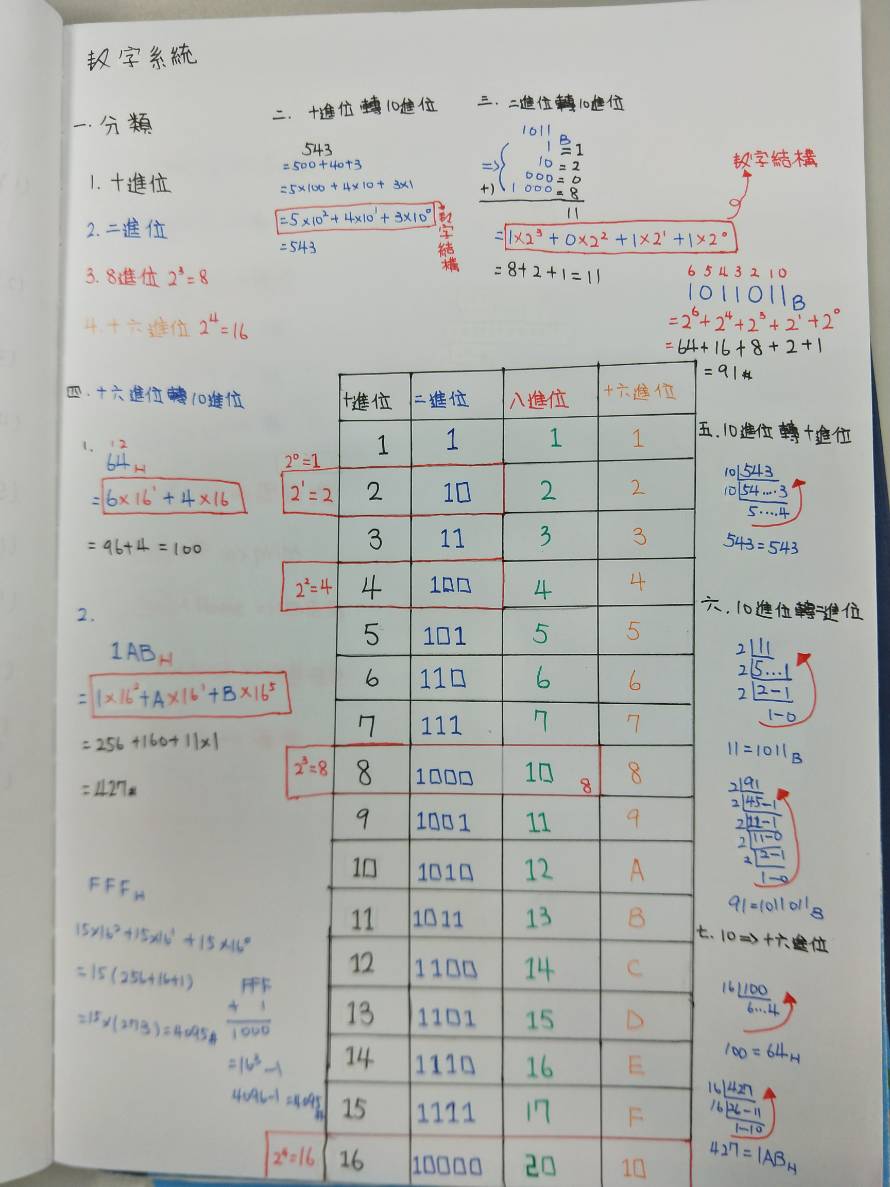 數字系統
一.分類
1.十進位
2.二進位
3.8進位 2³=8
4.十六進位 2⁴=16
二.十進位轉10進位
543
=500+40+3
=5×100+4×10+3×1
=5×10²+4×10¹+3×10⁰
數字結構
=543
三.二進位轉10進位
1011B
1=1
⇒ 10=2
000=0
+) 1000=8
11
數字結構
=1×2³+0×2²+1×2¹+1×2⁰
=8+2+1=11
6 5 4 3 2 1 0
1011011B
=2⁶+2⁴+2³+2¹+2⁰
=64+16+8+2+1
=91#
四.十六進位轉10進位
1.
1 2
64H
=6×16¹+4×16
=96+4=100
2.
1ABH
=1×16²+A×16¹+B×16⁵
=256+160+11×1
=427#
FFFH
15×16²+15×16¹+15×16⁰
=15(256+16+1)
=15×(273)=4095#
FFF
+ 1
1000
=16³-1
4096-1=4095#
十進位 二進位 八進位 十六進位
2⁰=1 1 1 1 1
2¹=2 2 10 2 2
3 11 3 3
2²=4 4 100 4 4
5 101 5 5
6 110 6 6
7 111 7 7
2³=8 8 1000 10 8 8
9 1001 11 9
10 1010 12 A
11 1011 13 B
12 1100 14 C
13 1101 15 D
14 1110 16 E
15 1111 17 F
2⁴=16 16 10000 20 10
五.10進位轉十進位
10 543
10 54…3
5…4
543=543
六.10進位轉二進位
2 11
2 5…1
2 2-1
1-0
11=1011B
2 91
2 45-1
2 22-1
2 11-0
2 2-1
1-0
91=1011011B
七.10⇒十六進位
16 100
6…4
100=64H
16 427
16 26-11
1-10
427=1ABH